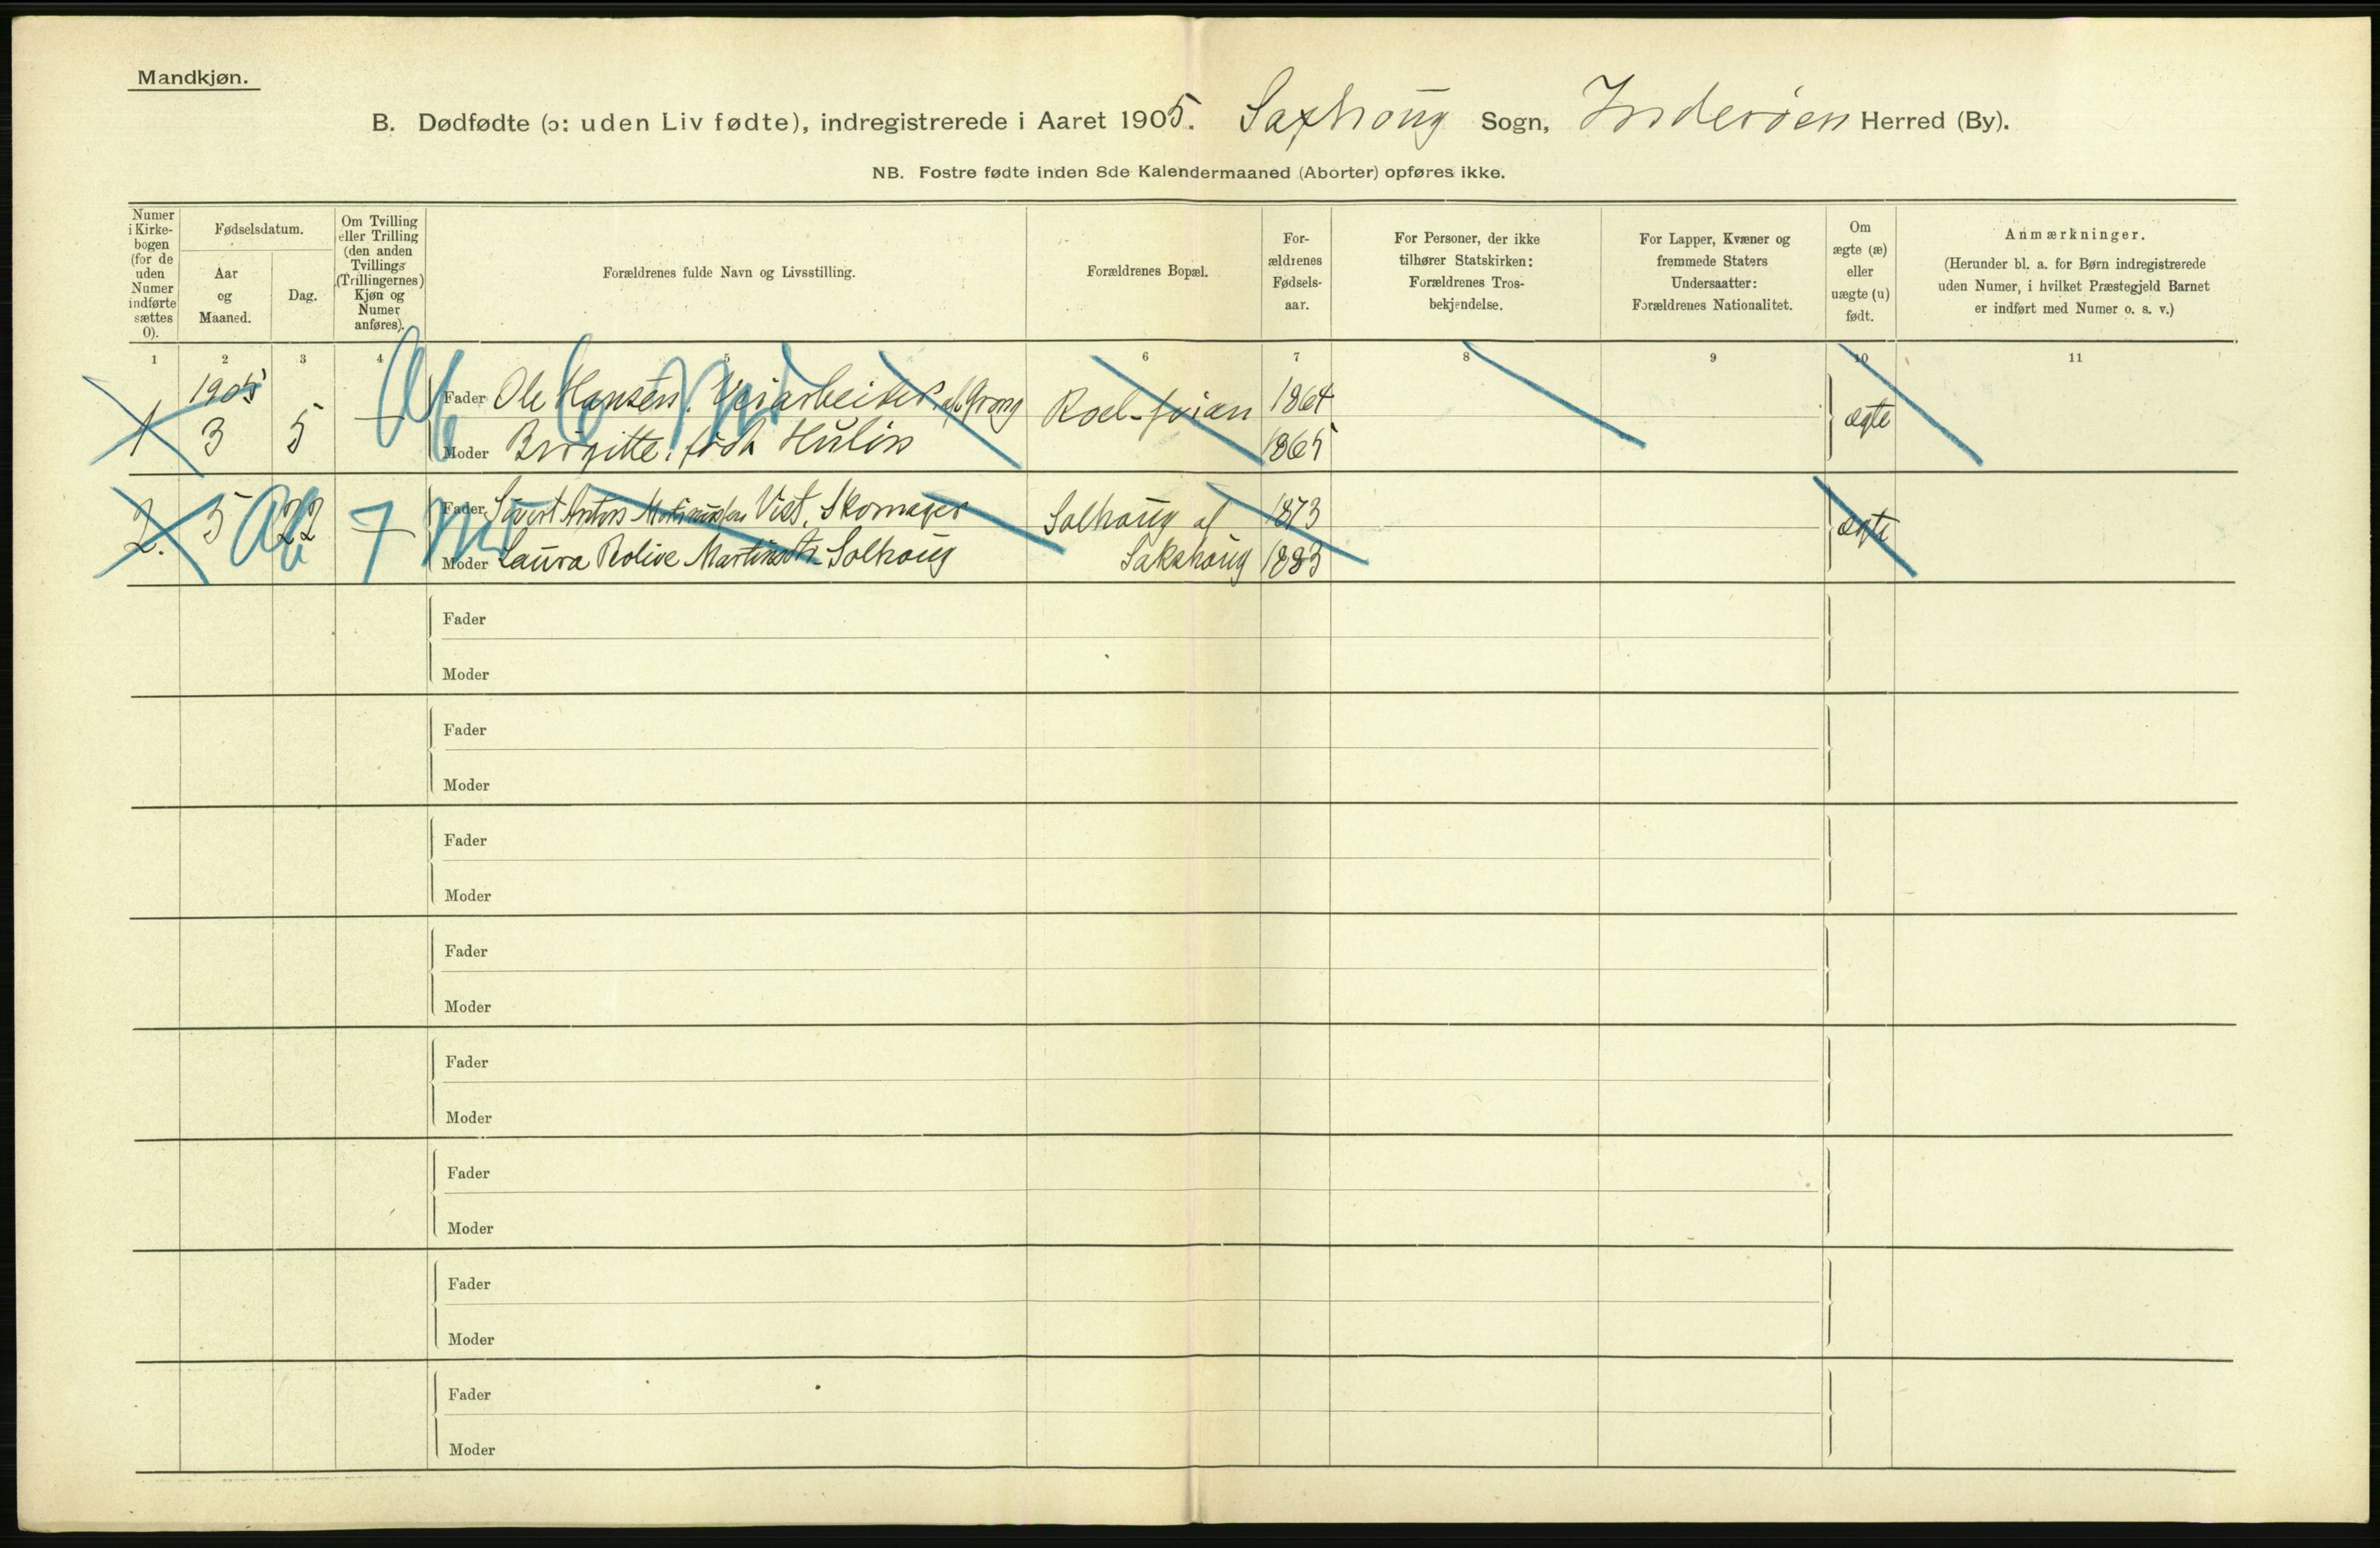 Mandkjøn.
B. Dødfødte (ɔ: uden Liv fødte), indregistrerede i Aaret 1905. Saxhoug Sogn, Inderøen Herred (By).
NB. Fostre fødte inden 8de Kalendermaaned (Aborter) opføres ikke.
Numer i Kirke-bogen (for de uden Numer indførte sættes 0).
Fødselsdatum.
Aar og Maaned.
Dag.
Om Tvilling eller Trilling (den anden Tvillings (Trillingernes) Kjøn og Numer anføres).
Forældrenes fulde Navn og Livsstilling.
Forældrenes Bopæl.
For-ældrenes Fødsels-aar.
For Personer, der ikke tilhører Statskirken: Forældrenes Tros-bekjendelse.
For Lapper, Kvæner og fremmede Staters Undersaatter: Forældrenes Nationalitet.
Om ægte (æ) eller uægte (u) født.
Anmærkninger.
(Herunder bl. a. for Børn indregistrerede uden Numer, i hvilket Præstegjeld Barnet er indført med Numer o. s. v.)
1 2 3 4 5 6 7 8 9 10 11
1905
1 3 5 — Fader Ole Hansen. Veiarbeider, af Grong 1864 ægte
Moder Birgitte, født 1865
2. 5 22 7 Fader Sivert Anton Vist, Skomager Solhoug af 1873 ægte
Moder Laura Rolive Martinsdtr Solhoug Sakshoug 1883
Fader
Moder
Fader
Moder
Fader
Moder
Fader
Moder
Fader
Moder
Fader
Moder
Fader
Moder
Fader
Moder